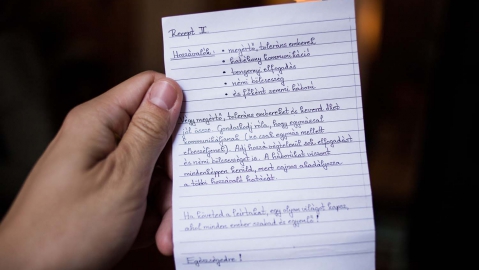 Recept II
Hozzávalók: • megértő, toleráns emberek
• hatékony kommunikáció
• tengernyi elfogadás
• némi bölcsesség
• és főként semmi háború
Végy megértő, toleráns embereket és keverd őket
jól össze. Gondoskodj róla, hogy egymással
kommunikáljanak (ne csak egymás mellett
elbeszéljenek). Adj hozzá végtelenül sok elfogadást
és némi bölcsességet is. A háborúkat viszont
mindenképpen kerüld, mert sajnos aláássa
a többi hozzávaló hatását.
Ha követed a leírtakat, egy olyan világot kapsz,
ahol minden ember szabad és egyenlő!
Egészségedre!